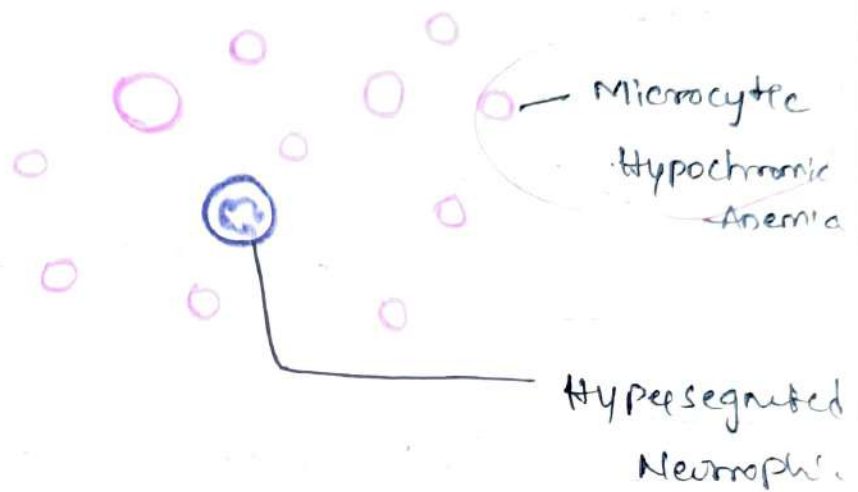 Microcytic
Hypochromic
Anemia
Hypersegmented
Neutrophi.